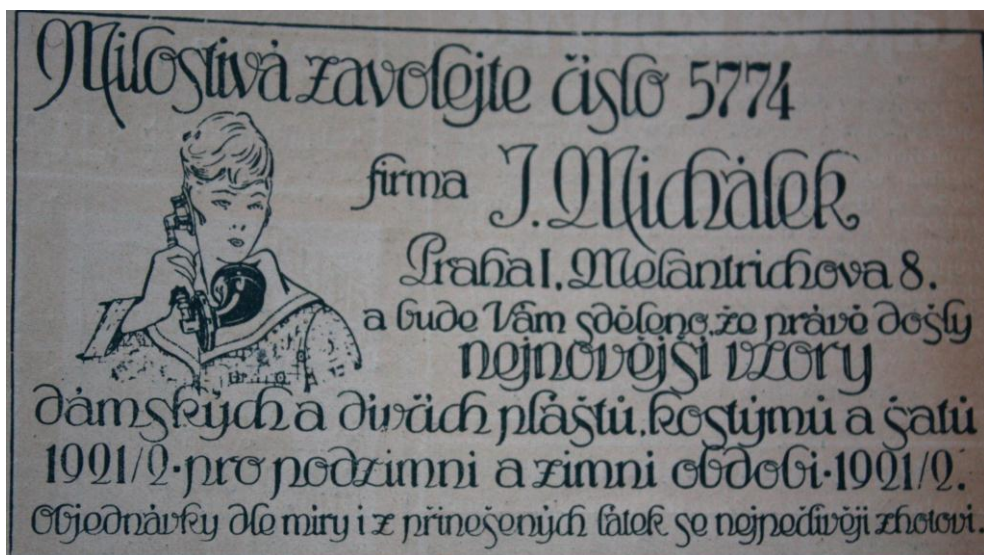 Milostivá zavolejte číslo 5774
firma J. Michálek
Praha I, Melantrichova 8.
a bude Vám sděleno, že právě došly
nejnovější vzory
dámských a dívčích plášťů, kostýmů a šatů
1921/2·pro podzimni a zimni období·1921/2.
Objednávky dle miry i z přinešených látek se nejpečlivěji zhotoví.